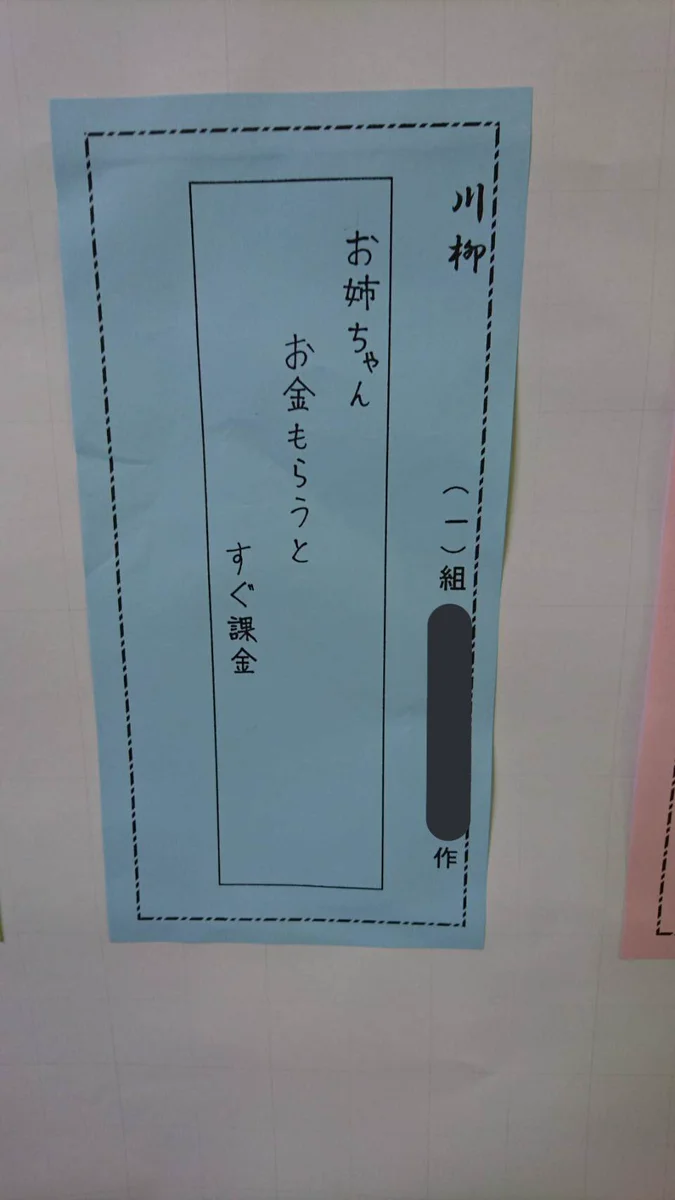 川柳
(一)組 作
お姉ちゃん
お金もらうと
すぐ課金